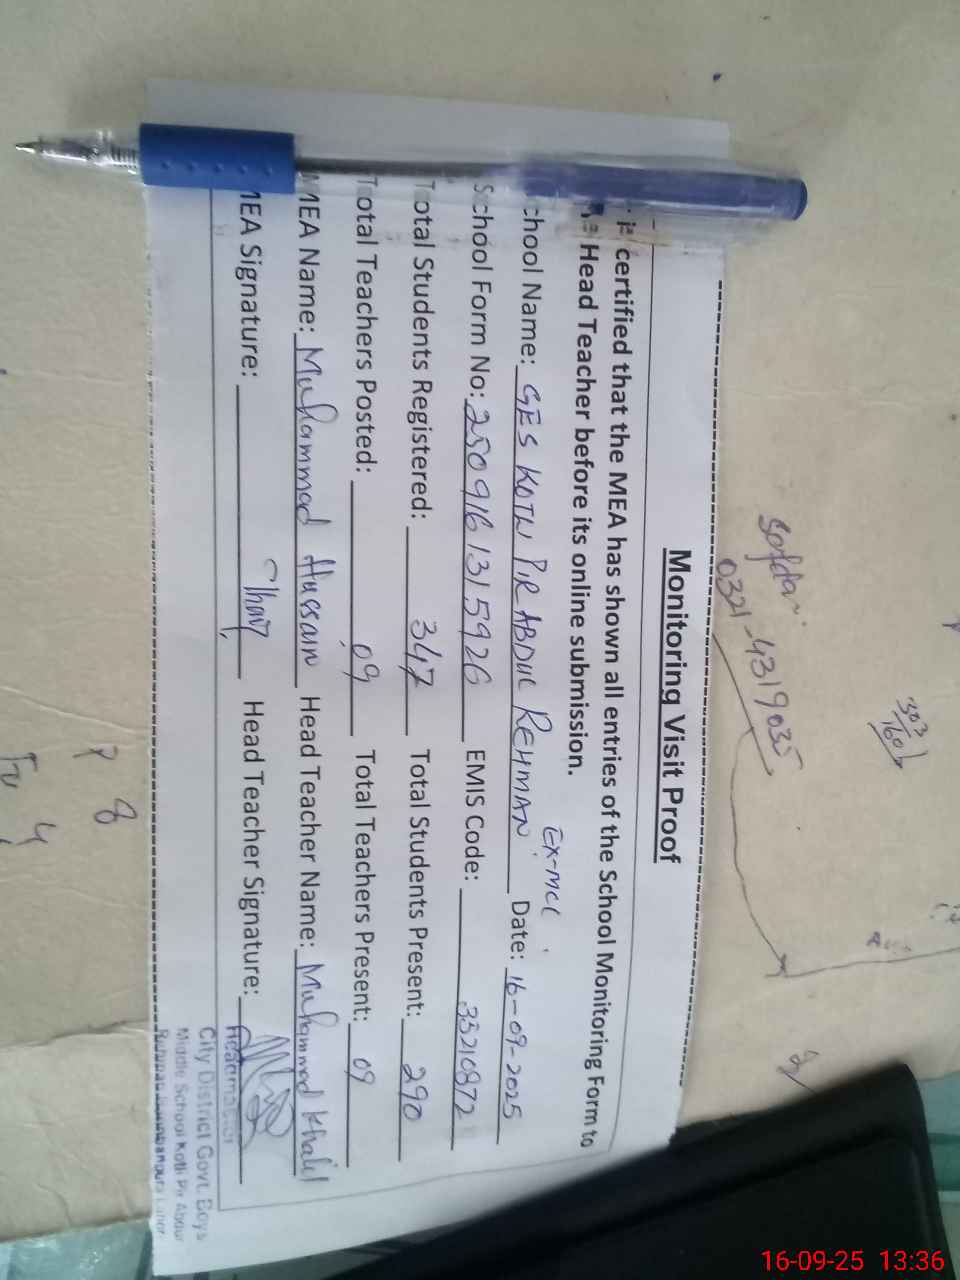 Monitoring Visit Proof
is certified that the MEA has shown all entries of the School Monitoring Form to
Head Teacher before its online submission.
EX-MCL
chool Name: GES KOTLI PIR ABDUL REHMAN Date: 16-09-2025
School Form No: 2509161315926 EMIS Code: 35210872
Total Students Registered: 347 Total Students Present: 290
Total Teachers Posted: 09 Total Teachers Present: 09
MEA Name: Muhammad Hussain Head Teacher Name: Muhammad Khalil
MEA Signature: Head Teacher Signature:
Headmaster
City District Govt. Boys
Middle School Kotli Pir Abdur
0321-4319035
8
4
16-09-25 13:36